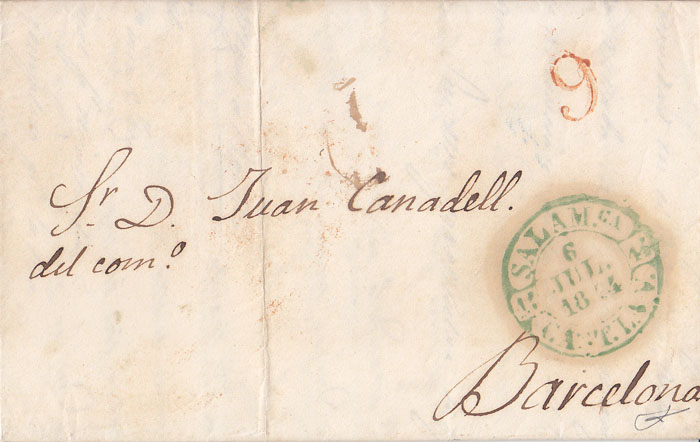 9
Sr. D. Juan Canadell.
del com.º
SALAM.CA
6
JUL.
18
Barcelona